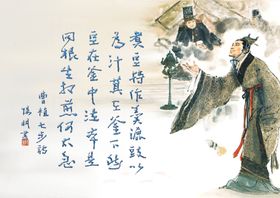 煮豆持作羹漉豉以
為汁萁在釜下燃
豆在釜中泣本是
同根生相煎何太急
曹植七步詩